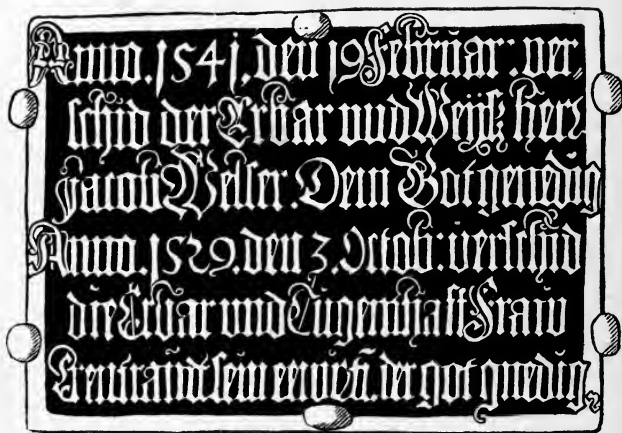 Anno. 1541. den 19 Februar: ver,
schid der Erbar und Weijß herr
Jacob Welser. Dem Got genedig
Anno. 1529. den 3. Octob: verschid
die Erbar und Tugenthafft Fraw
sein der got gnedig